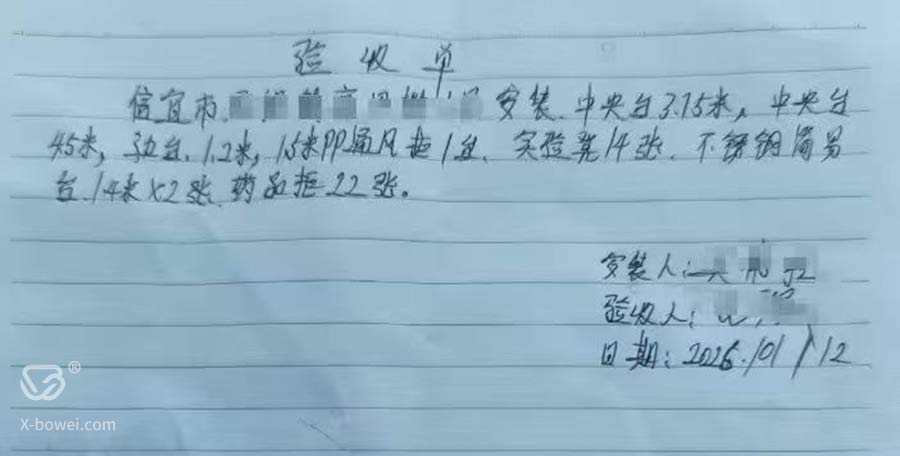 验收单
信宜市 安装.中央台3.75米,中央台
45米,边台.1.2米,15米PP通风柜1台.实验凳14张.不锈钢简易
台.14米×2张.药品柜22张。
安装人:
验收人:
日期:2026.01/12
®
X-bowei.com